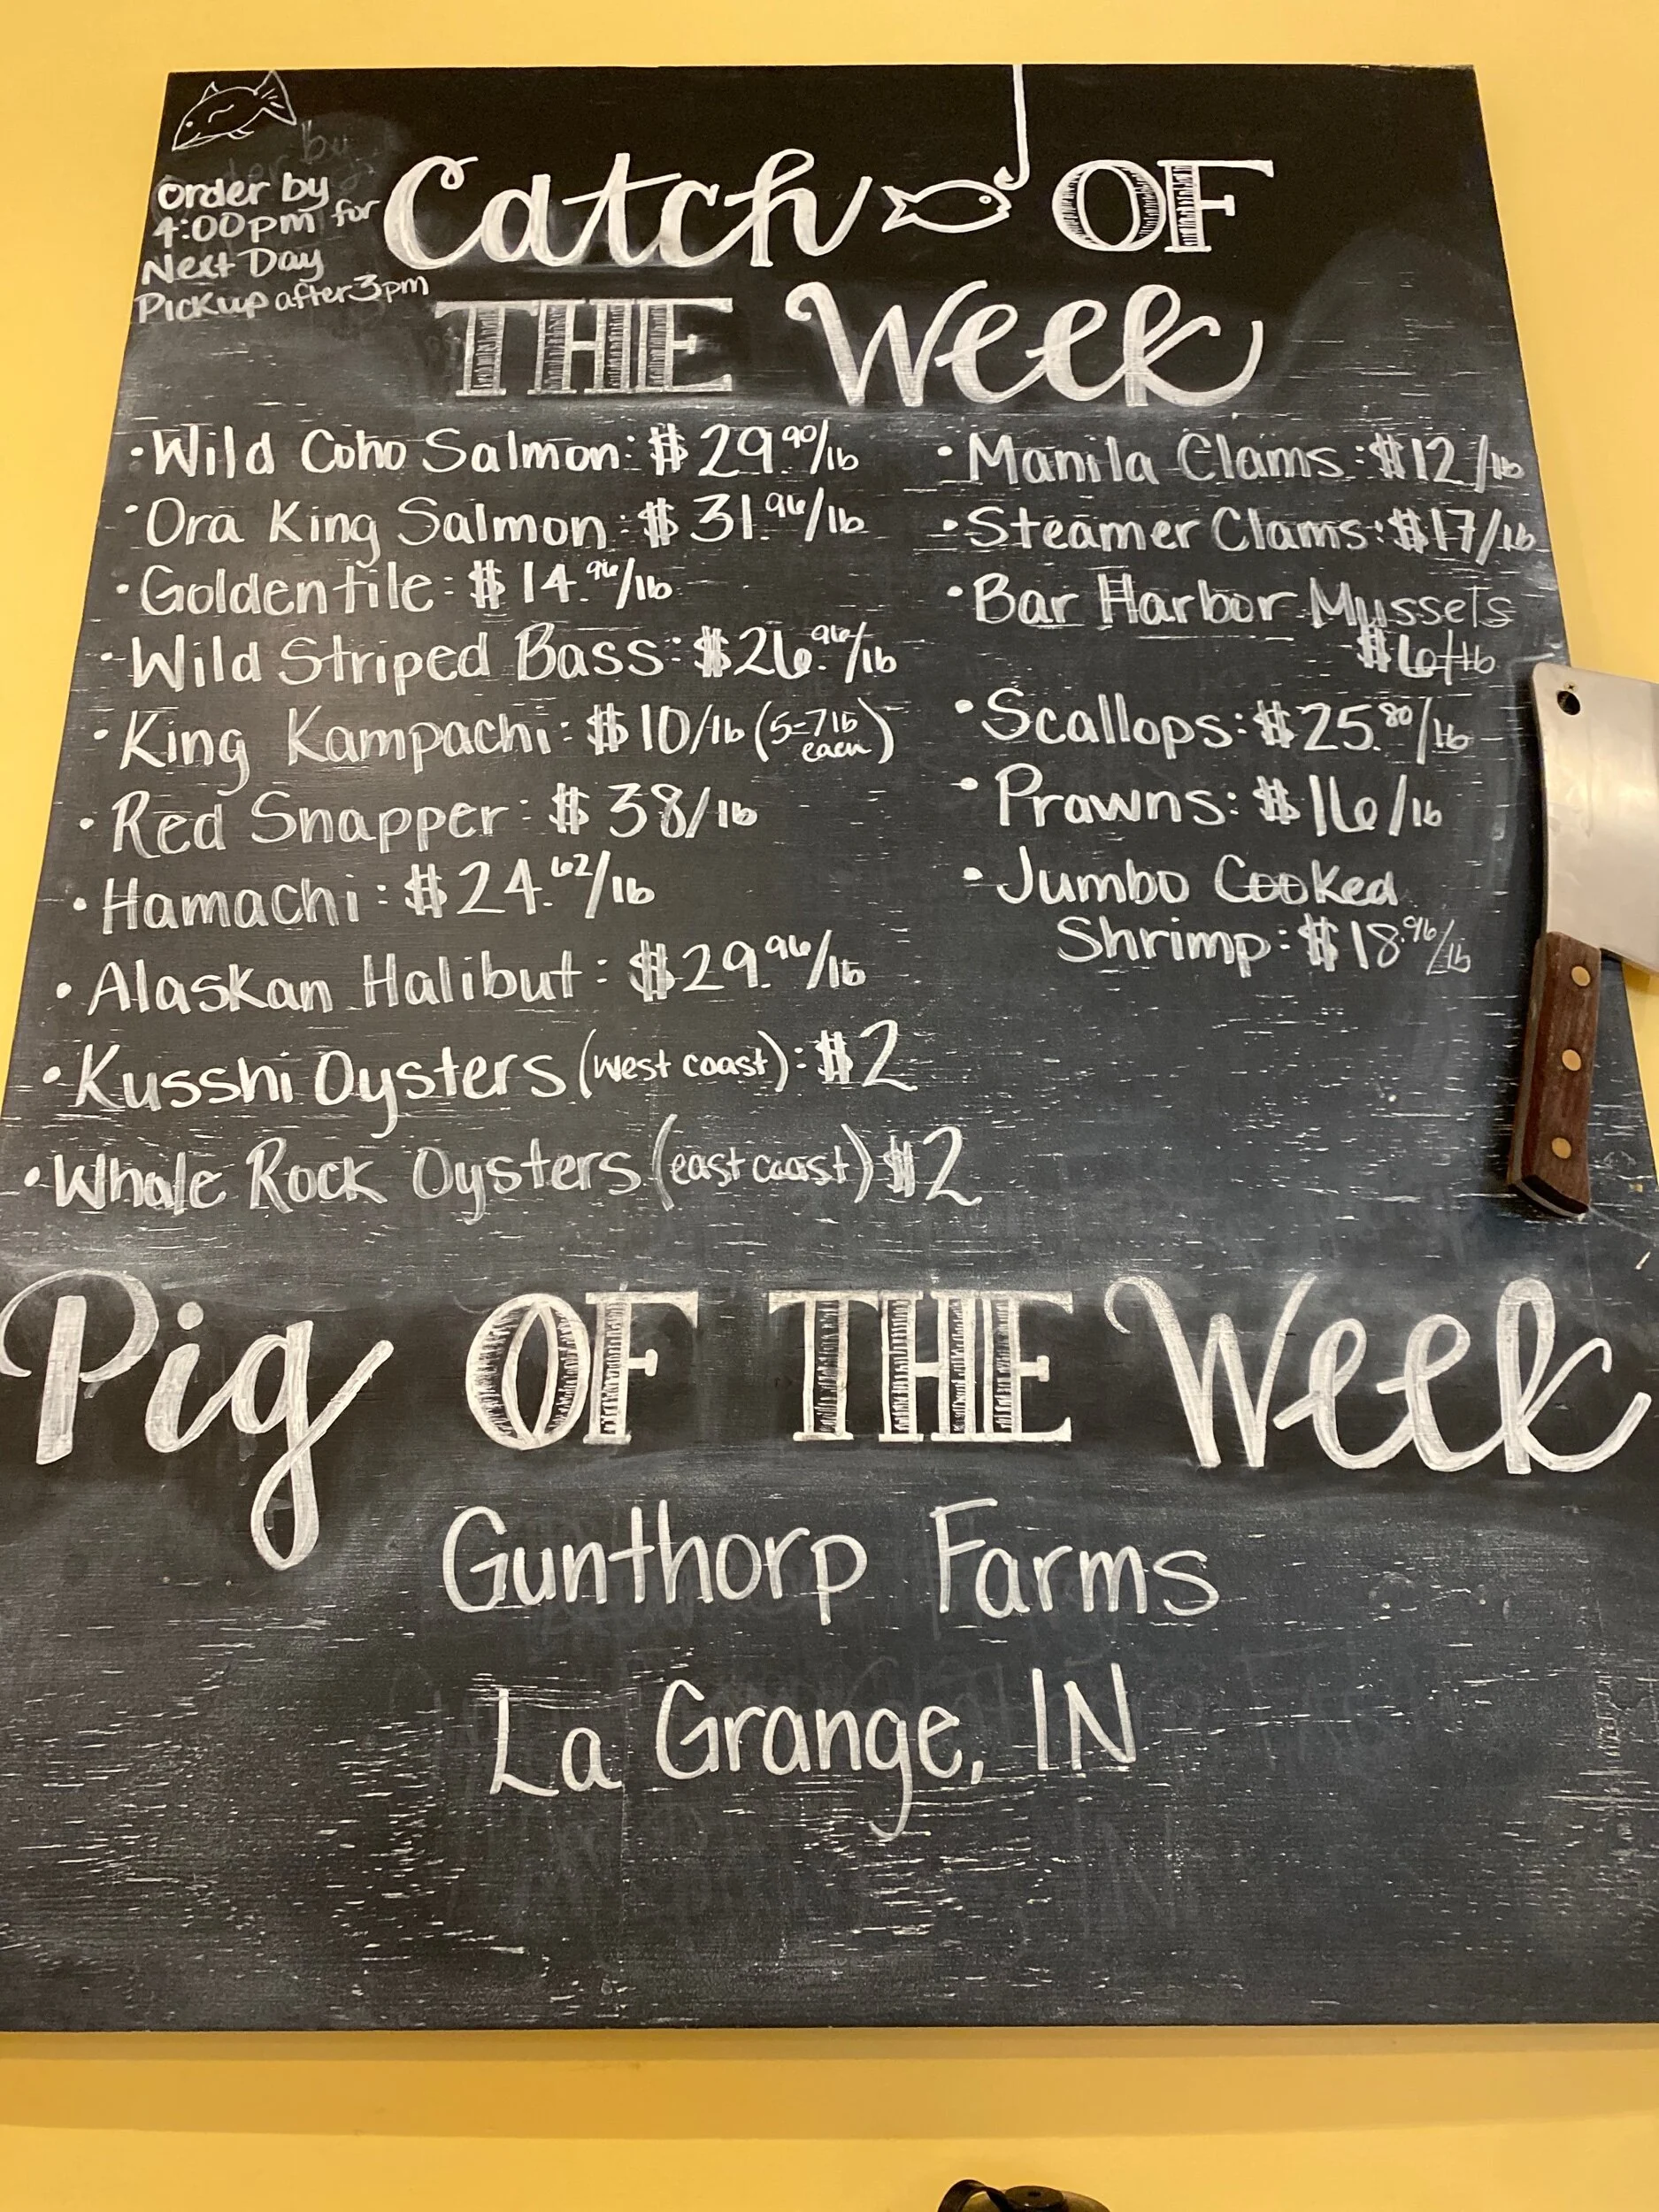 Order by
4:00pm for
Next Day
Pickup after 3pm
Catch OF
THE Week
• Wild Coho Salmon: $29.90/lb
• Ora King Salmon: $31.96/lb
• Golden tile: $14.96/lb
• Wild Striped Bass: $26.96/lb
• King Kampachi: $10/lb (5-7lb each)
• Red Snapper: $38/lb
• Hamachi: $24.62/lb
• Alaskan Halibut: $29.96/lb
• Kusshi Oysters (west coast): $2
• Whale Rock Oysters (east coast) $2
• Manila Clams: $12/lb
• Steamer Clams: $17/lb
• Bar Harbor Mussels
$6/lb
• Scallops: $25.80/lb
• Prawns: $16/lb
• Jumbo Cooked
Shrimp: $18.96/lb
Pig OF THE Week
Gunthorp Farms
La Grange, IN